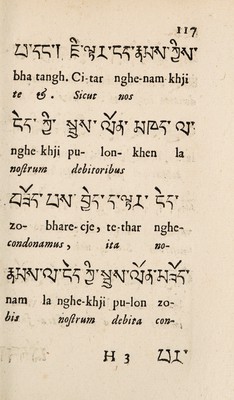 117
པ་དང། ཇི་ལྟར་ངད་རྣམས་ཀྱིས་
bha tangh. Ci-tar nghe-nam khji
te &. Sicut nos
ངེད་ཀྱི་སྦུས་ལོན་མཁད་ལ་
nghe khji pu- lon- khen la
nostrum debitoribus
བཟོད་པས་བྱེད་དལྟར་ངེད་
zo- bhare-cje, te-thar nghe-
condonamus, ita no-
རྣམས་ལ་ངེད་ཀྱི་སྦུས་ལོན་མཟོད་
nam la nghe-khji pu-lon zo-
bis nostrum debita con-
H 3 པར་